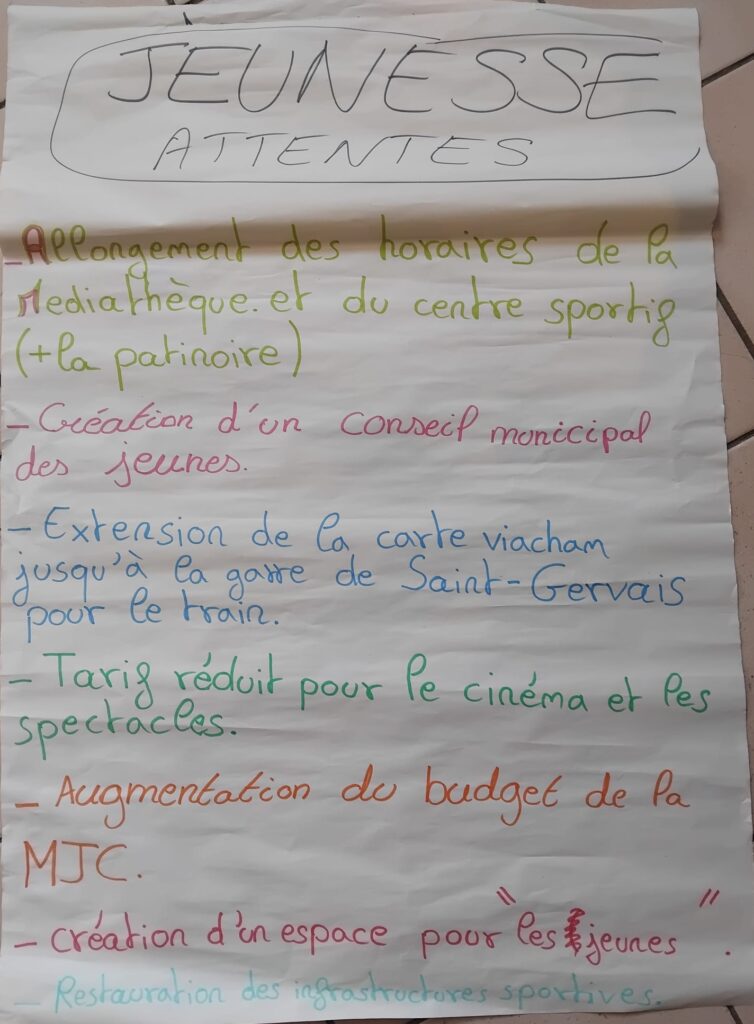 JEUNESSE
ATTENTES
- Allongement des horaires de la
Mediathèque et du centre sportif
(+ la patinoire)
- Création d'un conseil municipal
des jeunes.
- Extension de la carte viacham
jusqu'à la gare de Saint-Gervais
pour le train.
- Tarif réduit pour le cinéma et les
spectacles.
- Augmentation du budget de la
MJC.
- création d'un espace pour "les jeunes".
- Restauration des infrastructures sportives.